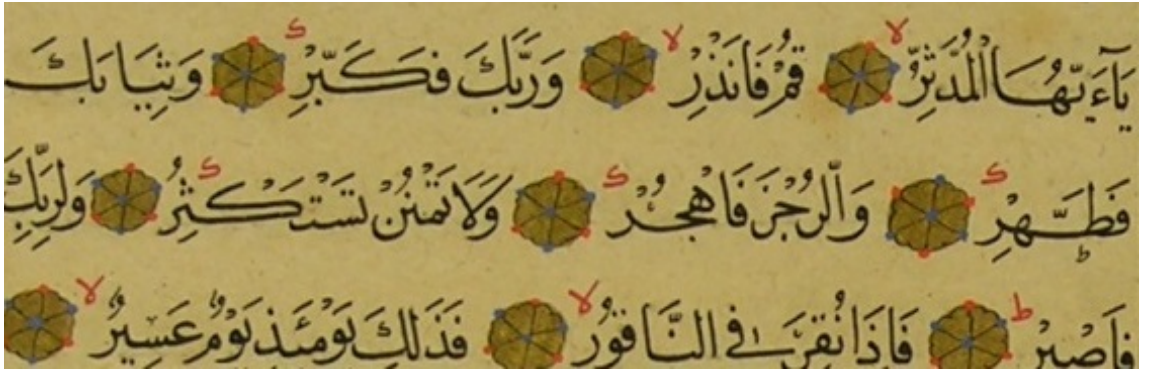 يَآءَيُّهَا الْمُدَّثِّرُ لا قُمْ فَاَنْذِرْ لا وَرَبَّكَ فَكَبِّرْ ك وَثِيَابَكَ
فَطَهِّرْ ك وَالرُّجْزَ فَاهْجُرْ ك وَلَا تَمْنُنْ تَسْتَكْثِرُ ك وَلِرَبِّكَ
فَاصْبِرْ ط فَاِذَا نُقِرَ فِى النَّاقُورِ لا فَذٰلِكَ يَوْمَئِذٍ يَوْمٌ عَسِيرٌ لا